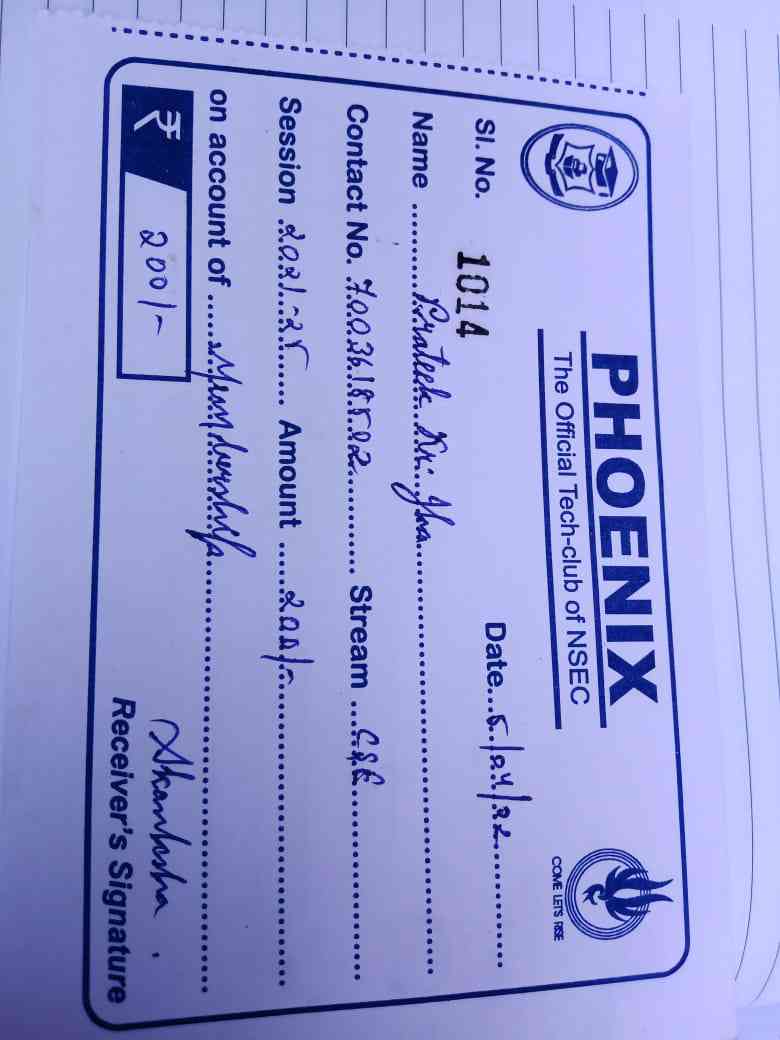 PHOENIX
The Official Tech-club of NSEC
COME LETS RISE
Sl. No. 1014 Date 5/04/22
Name Prateek Kr. Jha
Contact No. 7003618502 Stream CSE
Session 2021-25 Amount 200/-
on account of Membership
₹ 200/-
Akanksha
Receiver's Signature